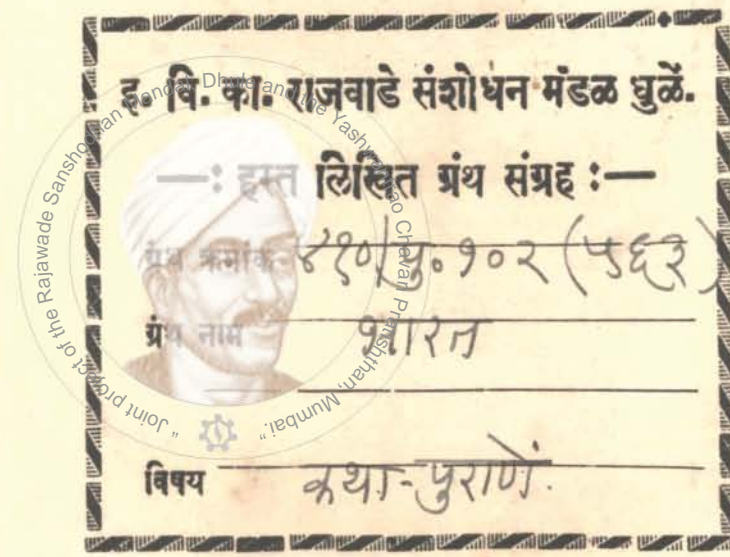 इ. वि. का. राजवाडे संशोधन मंडळ धुळें.
—: हस्त लिखित ग्रंथ संग्रह :—
ग्रंथ क्रमांक ४१०/पु.१०२ (५६३)
ग्रंथ नाम भारत
विषय कथा-पुराणें.
"Joint project of the Rajawade Sanshodhan Mandal, Dhule and the Yashwantrao Chavan Pratishthan, Mumbai."